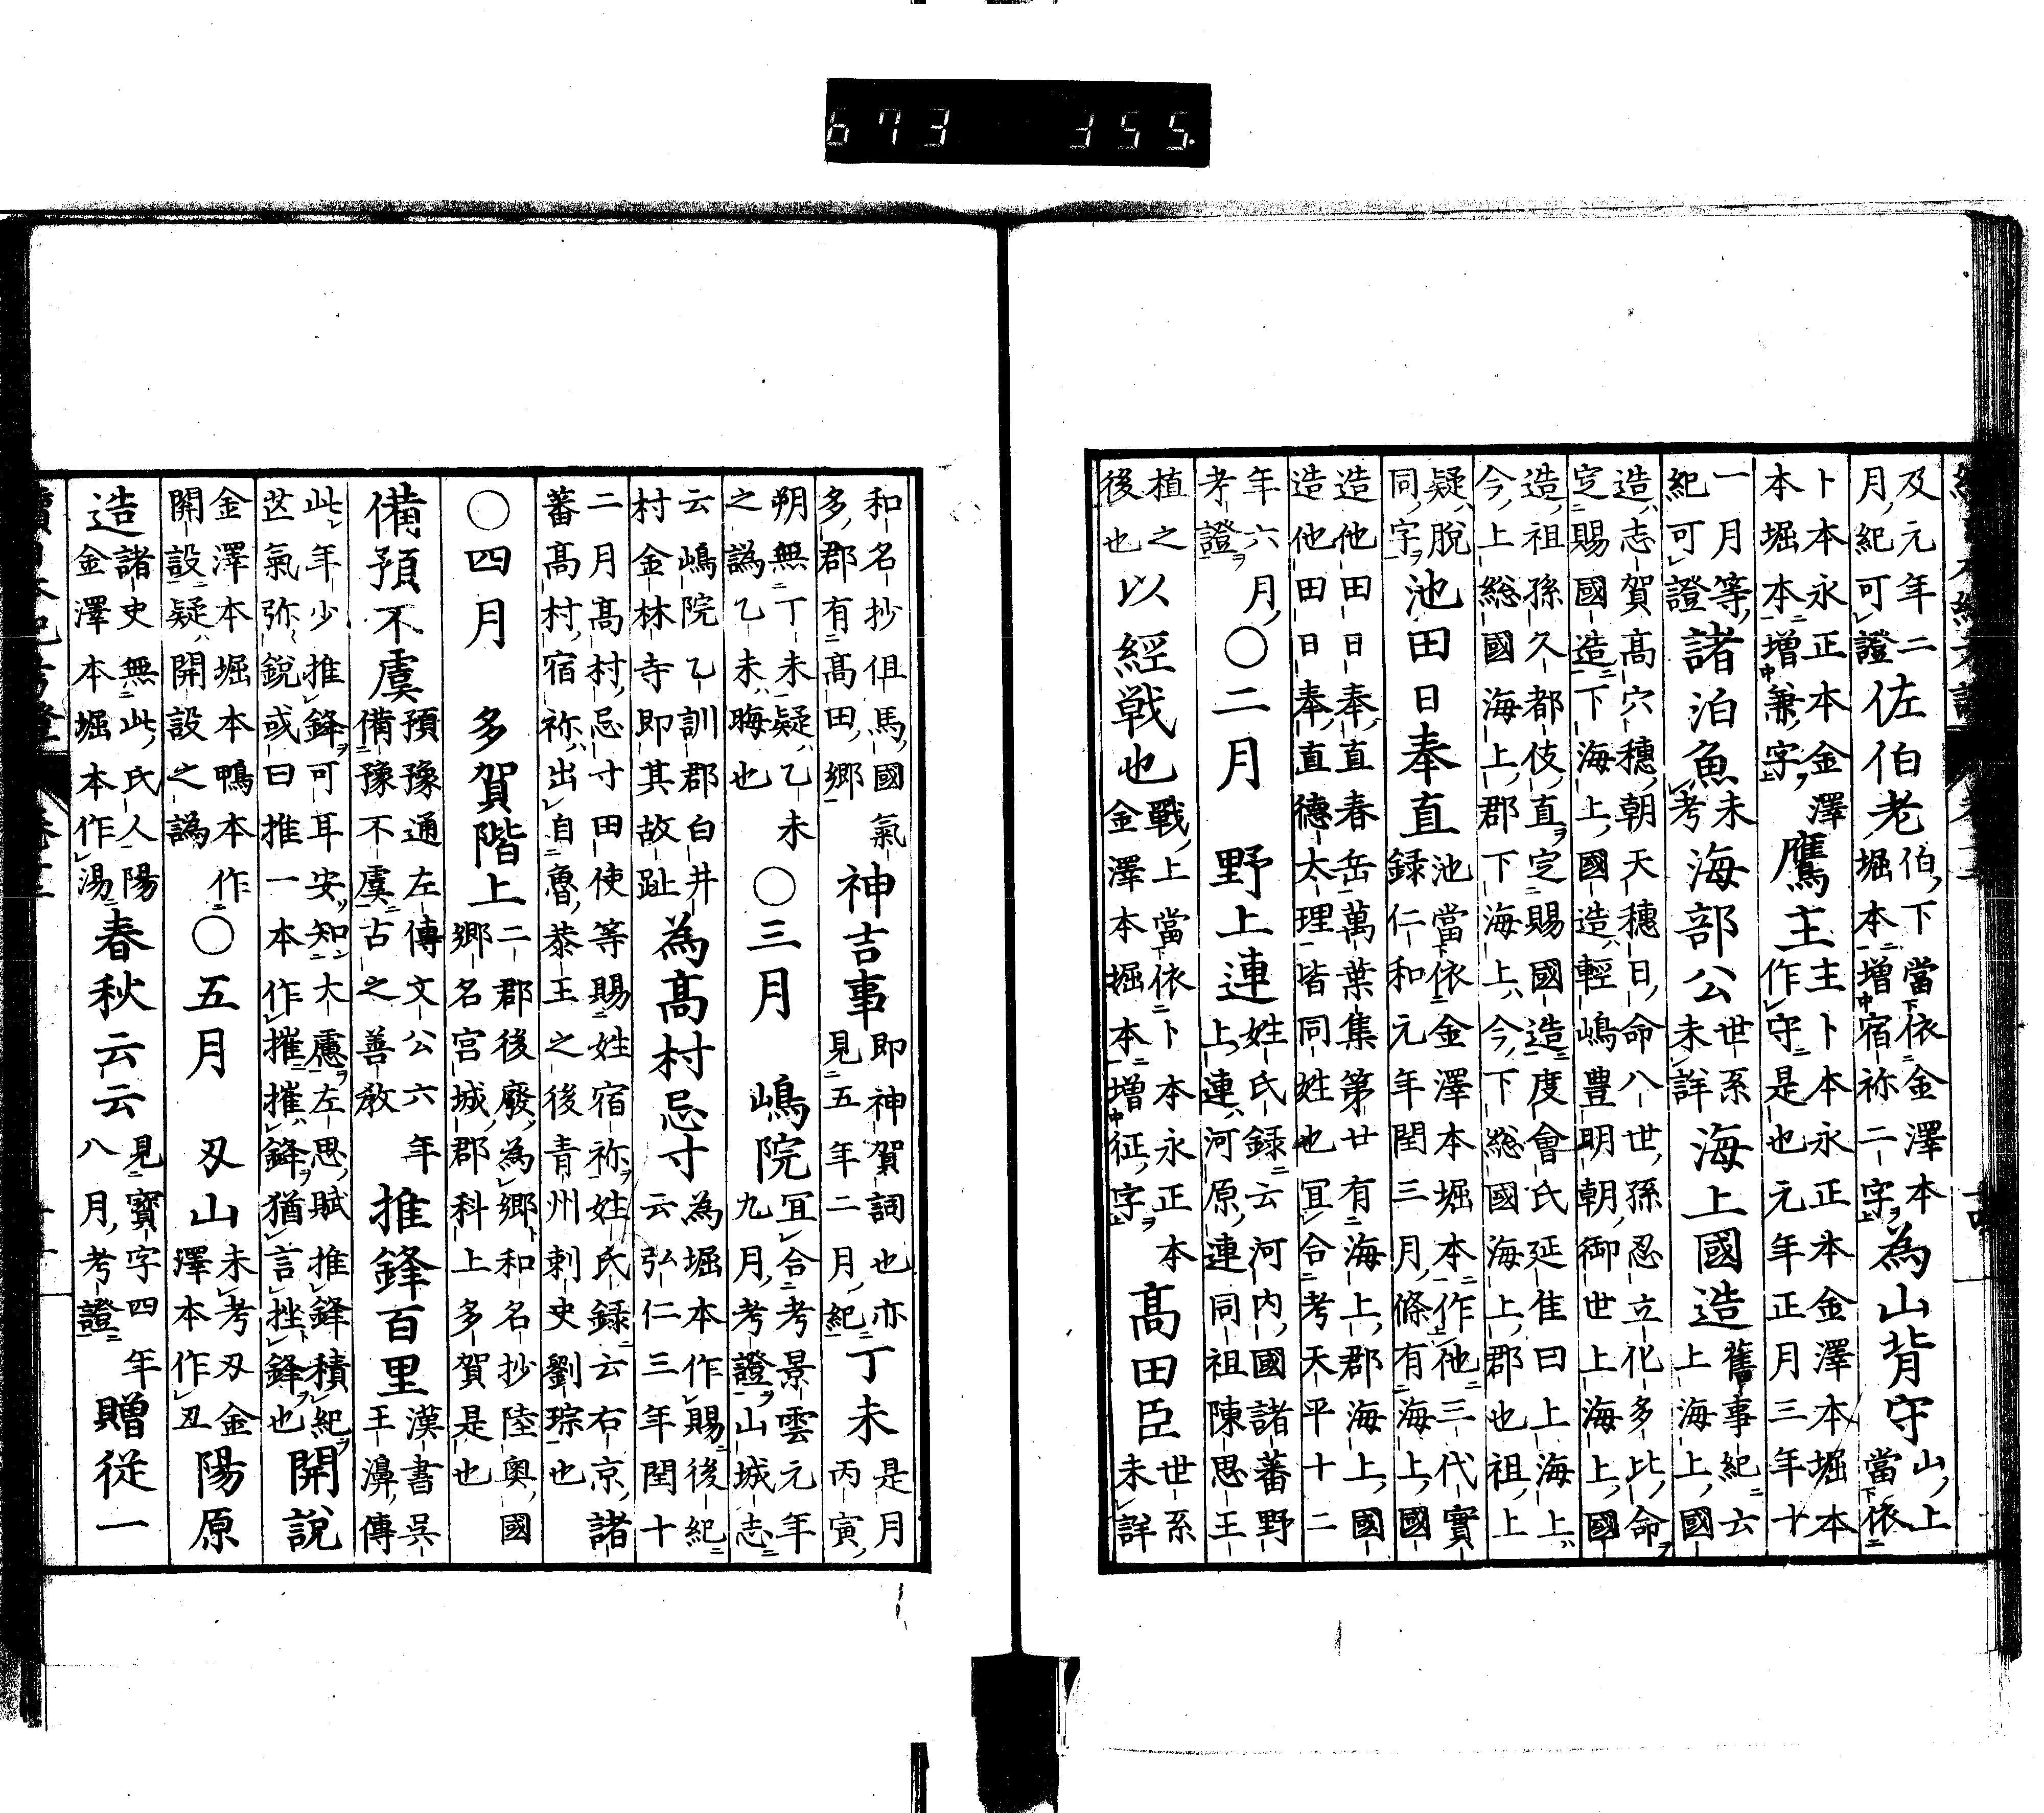 及元年二月紀可證佐伯老伯下當依金澤本堀本増宿祢二字為山背守山上當依
卜本永正本金澤本堀本増兼字鷹主主卜本永正本金澤本堀本作守是也元年正月三年十
一月等紀可證諸泊魚未考海部公世系未詳海上國造舊事紀云上海上國
造志賀髙穴穗朝天穗日命八世孫忍立化多比命定賜國造下海上國造輕嶋豊明朝御世上海上國
造祖孫久都伎直定賜國造度會氏延佳曰上海上今上総國海上郡下海上今下総國海上郡也祖上
疑脫同字池田日奉直池當依金澤本堀本作他三代實録仁和元年閏三月條有海上國
造他田日奉直春岳萬葉集第廿有海上郡海上國造他田日奉直德太理皆同姓也宜合考天平十二
年六月考證〇二月　野上連姓氏録云河内國諸蕃野上連河原連同祖陳思王
植之後也以經戦也戰上當依卜本永正本金澤本堀本増征字髙田臣世系未詳
和名抄但馬國氣多郡有髙田郷神吉事即神賀詞也亦見五年二月紀丁未是月丙寅
朔無丁未疑乙未之譌乙未晦也〇三月　嶋院宜合考景雲元年九月考證山城志
云嶋院乙訓郡白井村金林寺即其故趾為髙村忌寸為堀本作賜後紀云弘仁三年閏十
二月髙村忌寸田使等賜姓宿祢姓氏録云右京諸蕃髙村宿祢出自魯恭王之後青州刺史劉琮也
〇四月　多賀階上二郡後廢為郷和名抄陸奧國郷名宮城郡科上多賀是也
備預不虞預豫通左傳文公六年備豫不虞古之善教推鋒百里漢書呉王濞傳
此年少推鋒可耳安知大慮左思賦推鋒積紀茋氣弥銳或曰推一本作摧摧鋒猶言挫鋒也開說
金澤本堀本鴨本作開設疑開設之譌〇五月　刄山未考刄金澤本作丑陽原
造諸史無此氏人陽金澤本堀本作湯春秋云云見寳字四年八月考證贈従一